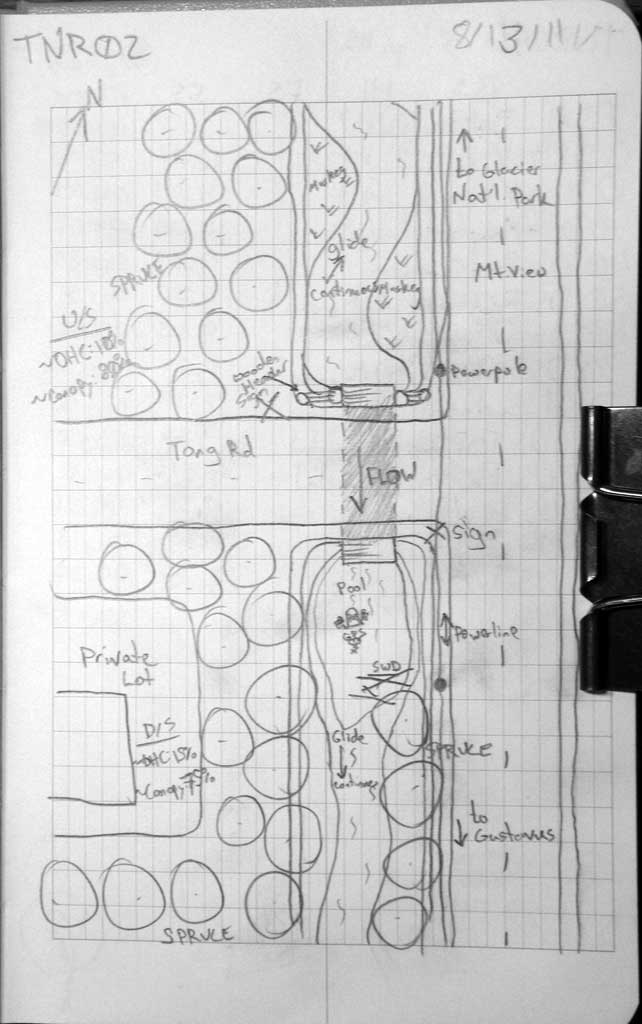 TNR02
8/13/11
N
to Glacier
Nat'l. Park
Muskeg
Glide
Mt View
SPRUCE
continues
Muskeg
U/S
~OHC:10%
~Canopy:80%
Wooden
Header
Sign
Powerpole
Tong Rd
FLOW
Sign
Pool
Powerline
Private
Lot
SWD
D/S
~OHC:15%
~Canopy:75%
Glide
continues
SPRUCE
to
Gustavus
SPRUCE